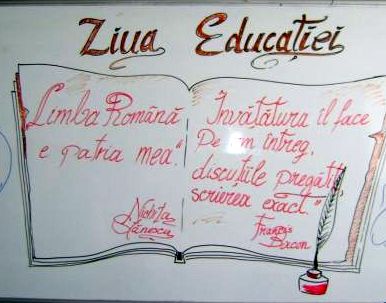 Ziua Educației
Limba Română
e patria mea."
Nichita
Stănescu
Învățătura îl face
pe om întreg,
discuțiile pregătit,
scrierea exact."
Francis
Bacon